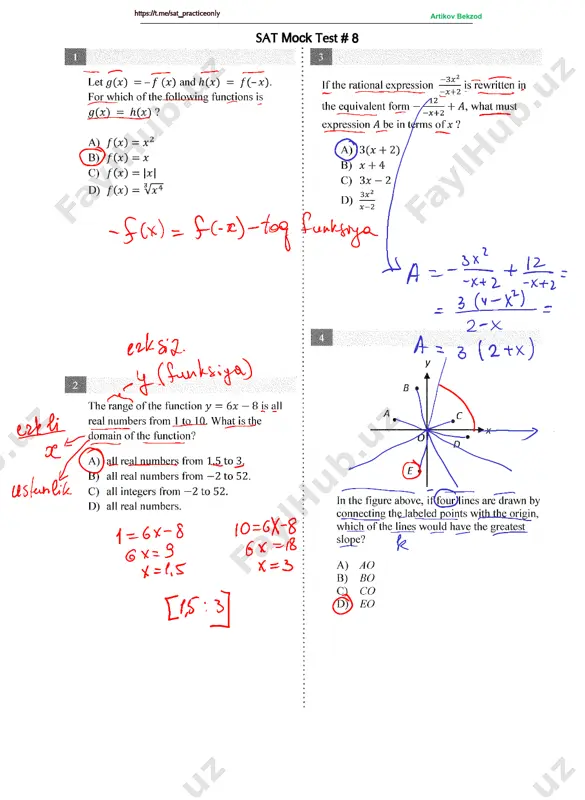 https://t.me/sat_practiceonly
Artikov Bekzod
SAT Mock Test # 8
1
Let g(x) = −f (x) and h(x) = f(−x).
For which of the following functions is
g(x) = h(x) ?
A) f(x) = x²
B) f(x) = x
C) f(x) = |x|
D) f(x) = ∛x⁴
-f(x) = f(-x) - toq funksiya
erksiz.
y (funksiya)
2
The range of the function y = 6x − 8 is all
real numbers from 1 to 10. What is the
domain of the function?
erkli
x
ustunlik
A) all real numbers from 1.5 to 3.
B) all real numbers from −2 to 52.
C) all integers from −2 to 52.
D) all real numbers.
1 = 6x-8
6x = 9
x = 1,5
10 = 6x-8
6x = 18
x = 3
[1,5 ; 3]
3
If the rational expression −3x²/−x+2 is rewritten in
the equivalent form − 12/−x+2 + A, what must
expression A be in terms of x ?
A) 3(x + 2)
B) x + 4
C) 3x − 2
D) 3x²/x−2
A = - 3x²/-x+2 + 12/-x+2 =
= 3(4-x²)/2-x =
A = 3 (2+x)
4
y
B
A
C
O
x
D
E
In the figure above, if four lines are drawn by
connecting the labeled points with the origin,
which of the lines would have the greatest
slope?
k
A) AO
B) BO
C) CO
D) EO
FaylHub.uz
FaylHub.uz
FaylHub.uz
FaylHub.uz